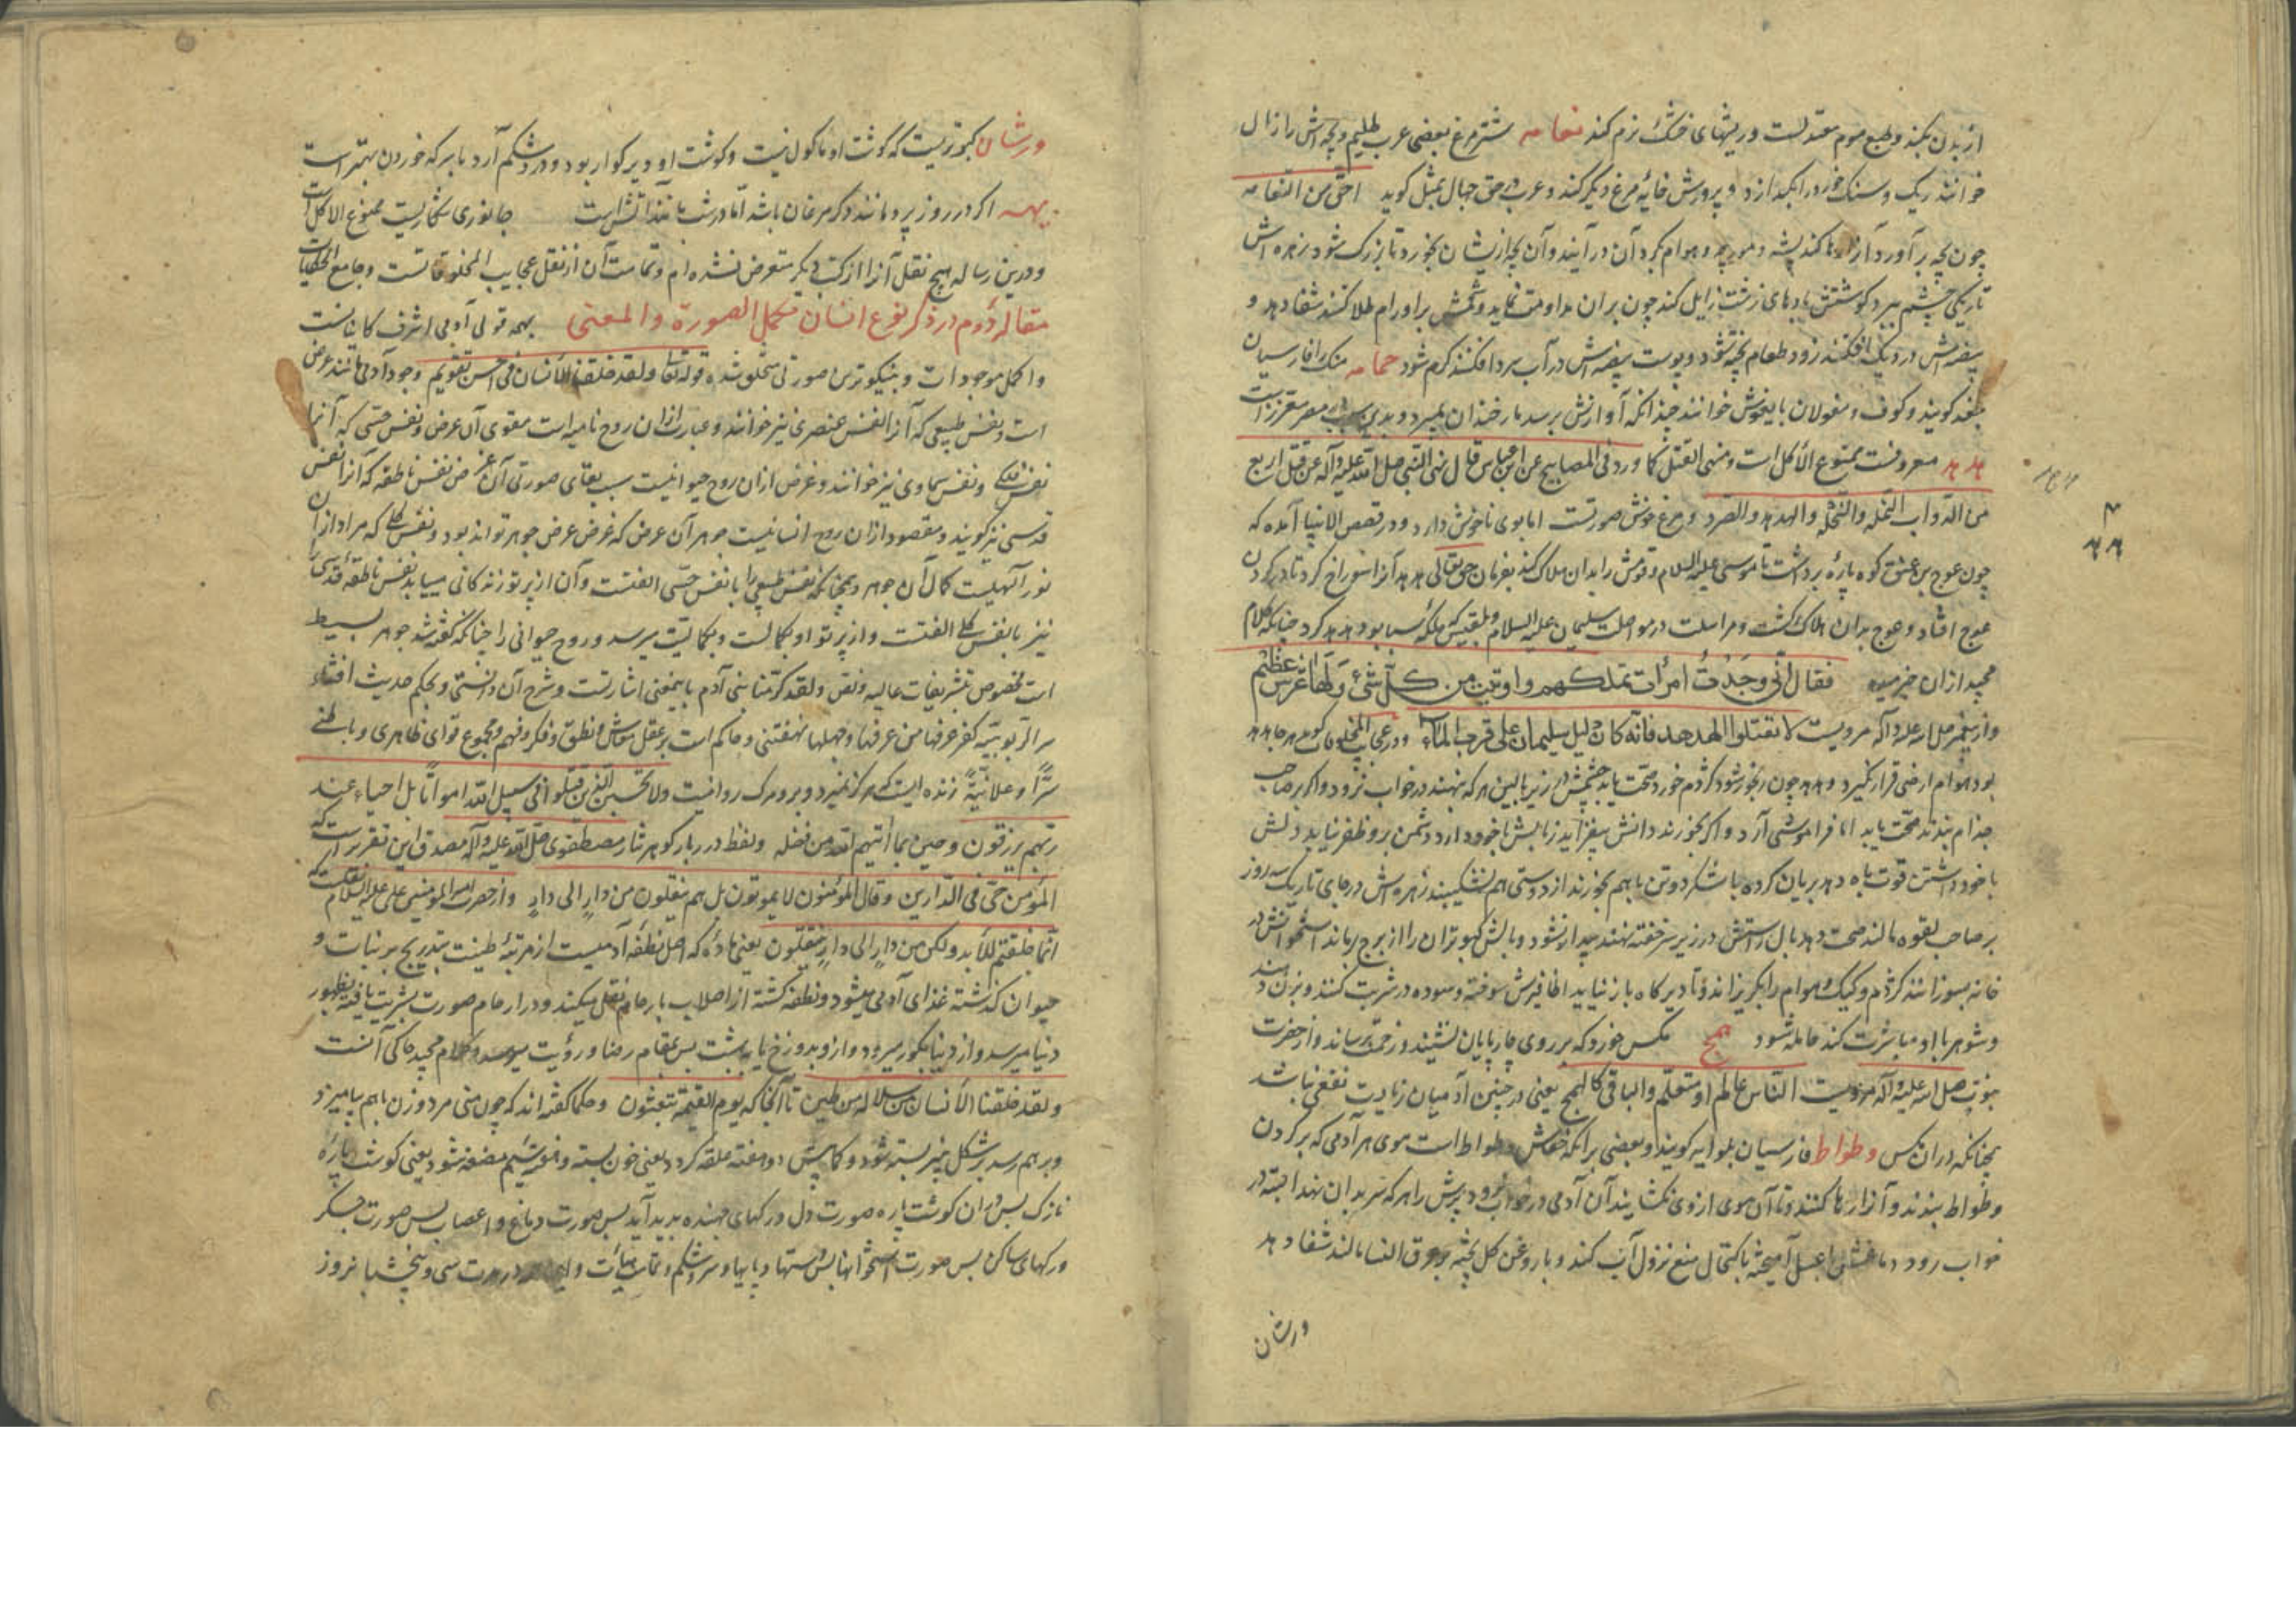 از بدن بکند و طبع موم معتدلست و ریشهای خشک نرم کند نعامه شترمرغ بعضی عرب ظلیم و بچه‌اش را زال
خوانند ریک و سنک خورد را بکدازد و پرورش خایه مرغ دیکر کند و عرب در حق جهال بمثل کوید احق من النعامه
چون بچه برآورد آنرا رها کند پشه و مورچه و هوام بکرد آن درآیند و آن بچه ازیشان بخورد تا بزرک شود زهره‌اش
تاریکی چشم ببرد کوشتش بادهای زشت زایل کند چون بران مداومت نماید و شحمش بر اورام طلا کنند شفا دهد و
بیضه‌اش در دیک افکنند زود طعام پخته شود و پوست بیضه‌اش در آب سرد افکنند کرم شود
بغد کویند و کوف و مغولان بایغوش خوانند چندانکه آوازش برسد مار خندان بمیرد و بدین سبب
هدهد معروفست ممنوع الاکل است و منهی القتل کما ورد فی المصابیح عن ابن عباس قال نهی النبی صلی الله علیه و آله عن قتل اربع
من الدواب النمله والنحله والهدهد والصرد و مرغ خوش صورتست اما بوی ناخوش دارد و در قصص الانبیا آمده که
چون عوج بن عنق کوه پاره برداشت تا موسی علیه السلام و قومش را بدان هلاک کند بفرمان حق تعالی هدهد آنرا سوراخ کرد تا در کردن
عوج افتاد و عوج بدان هلاک کشت و مراسلت در مواصلت سلیمان علیه السلام و بلقیس که ملکه سبا بود هدهد کرد چنانکه کلام
مجید ازان خبر میدهد فقال انی وجدت امرأت تملکهم و اوتیت من کل شئ و لها عرش عظیم
و از پیغمبر صلی الله علیه و آله مرویست لا تقتلوا الهدهد فانه کان دلیل سلیمان علی قرب الماء و در عجایب المخلوقات کوید هر جا هدهد
بود هوام ارضی قرار نکیرد و هدهد چون رنجور شود کژدم خورد صحت یابد چشمش در زیر بالین هر که بنهند در خواب نرود و اکر بر صاحب
جذام بندند صحت یابد اما فراموشی آرد و اکر بخورند دانش بیفزاید زبانش با خود دارد دشمن برو ظفر نیابد دلش
با خود داشتن قوت باه دهد بریان کرده با شکر دو تن باهم بخورند از دوستی هم نشکیبند زهره‌اش در جای تاریک سه روز
بر صاحب لقوه مالند صحت دهد بال راستش در زیر سر خفته نهند بیدار نشود و بالش کبوتران را از برج رماند استخوانش در
خانه بسوزانند کژدم و کیک و هوام را بکریزاند و تا دیرکاه باز نیاید اظافیرش سوخته و سوده در شربت کنند و بزن دهند
و شوهر با او مباشرت کند حامله شود همج مکس خورد که بر روی چارپایان نشیند و زحمت رساند و از حضرت
نبوت صلی الله علیه و آله مرویست الناس عالم او متعلم والباقی کالهمج یعنی در چنین آدمیان زیادت نفعی نباشد
چنانکه دران مکس وطواط فارسیان بلوایه کویند و بعضی برانکه خفاش وطواط است موی هر آدمی که بر کردن
وطواط بندند و آنرا رها کنند تا آن موی از وی نکشایند آن آدمی در خواب نرود پرش را هر که سر بدان نهد البته در
خواب رود دماغش با عسل آمیخته باکتحال منع نزول آب کند و با روغن کل پخته بر عرق النسا مالند شفا دهد
ورشان
هدهد
ورشان کبوتریست که کوشت او ماکول نیست و کوشت او دیر کوار بود و درد شکم آرد با سرکه خوردن بهتر است
اکر در روز پرد مانند دکر مرغان باشد اما در شب مانند آتش است جانوری شکاریست ممنوع الاکل است
و درین رساله هیچ نقل آنرا از کتب دیکر متعرض نشده‌ام و تمامت آن از نقل عجایب المخلوقاتست و جامع الحکایات
مقاله دوم در ذکر نوع انسان مکمل الصورة والمعنی بهمه قولی آدمی اشرف کاینات است
و اکمل موجودات و بنیکوترین صورتی مخلوق شده قوله تعالی ولقد خلقنا الانسان فی احسن تقویم وجود آدمی مانند عرض
است و نفس طبیعی که آنرا نفس عنصری نیز خوانند و عبارت ازان روح نامیه است مقوی آن عرض و نفس حسی که آنرا
نفس فلکی و نفس سماوی نیز خوانند و غرض ازان روح حیوانیست سبب بقای صورتی آن عرض نفس ناطقه که آنرا نفس
قدسی نیز کویند و مقصود ازان روح انسانیست جوهر آن عرض که غرض عرض جوهر تواند بود و نفس کلی که مراد ازان
نور آلهیست کمال آن جوهر و چنانکه نفس طبیعی را با نفس حسی الفتست و آن از پرتو زندکانی مییابد نفس ناطقه قدسی را
نیز با نفس کلی الفتست و از پرتو او بکمالست و بکمالیت میرسد و روح حیوانی را چنانکه کفته شد جوهر بسیط
است مخصوص بتشریفات عالیه و نص ولقد کرمنا بنی آدم باینمعنی اشارتست و شرح آن دانستنی و بحکم حدیث افشاء
سر الربوبیة کفر عرفها من عرفها و جهلها من نهفتنی و حاکم است بر عقل معاش و نطق و فکر و فهم و مجموع قوای ظاهری و باطنی
سرّاً و علانیةً زنده ایست که هرکز نمیرد و برو مرک روا نیست ولا تحسبن الذین قتلوا فی سبیل الله امواتا بل احیاء عند
ربهم یرزقون فرحین بما آتیهم الله من فضله و لفظ درربار کوهر نثار مصطفوی صلی الله علیه و آله مصدق این تقریر است که
المؤمن حی فی الدارین و قال المؤمنون لا یموتون بل هم ینقلون من دار الی دار و از حضرت امیر المومنین علی علیه السلام
انما خلقتم للابد ولکن من دار الی دار ینتقلون یعنی ماده که اصل نطفه آدمیست از مرتبه طینت بتدریج بر نبات و
حیوان کذشته غذای آدمی میشود و نطفه کشته از اصلاب بارحام نقل میکند و در ارحام صورت بشریت یافته بظهور
دنیا میرسد و از دنیا بکور میرود و ازو بدوزخ یا بهشت پس بمقام رضا و رؤیت میرسد و کلام مجید حاکی آنست
ولقد خلقنا الانسان من سلالة من طین تا آنجا که یوم القیمة تبعثون و حکما کفته‌اند که چون منی مرد و زن باهم بیامیزد
و برهم رسد بر شکل پنیر بسته شود و کمابیش دو هفته علقه کردد یعنی خون بسته و مضغه شود یعنی کوشت پاره
نازک پس دران کوشت پاره صورت دل و رکهای جهنده پدید آید پس صورت دماغ و اعصاب پس صورت جکر
و رکهای ساکن پس صورت استخوانها پس دستها و پایها و سر و شکم و تمامت در مدت سی و پنج شبانروز